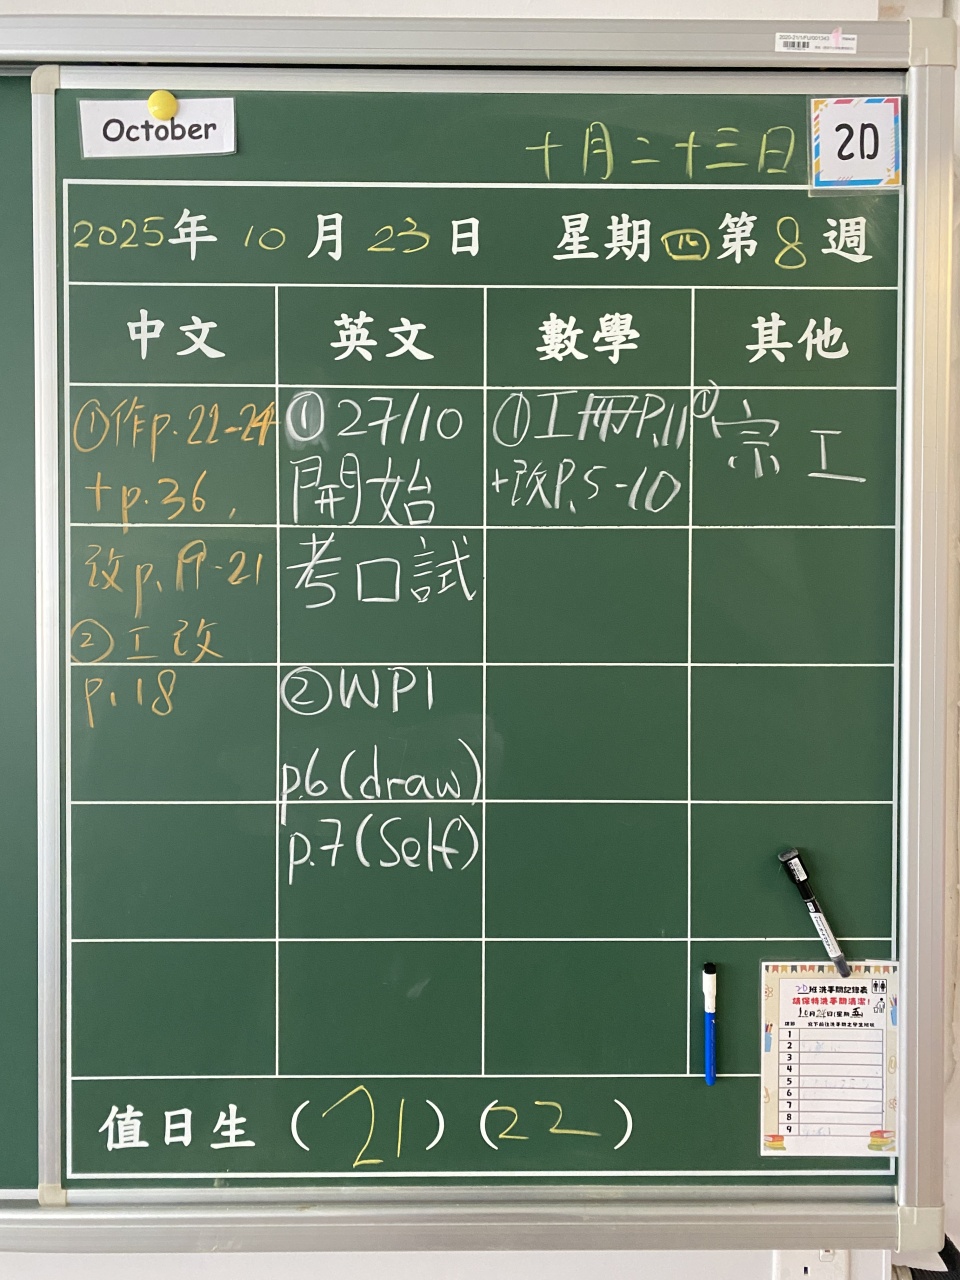 October
十月二十三日
2D
2025年 10 月 23 日 星期四第8週
中文
英文
數學
其他
①作p.22-24
+p.36,
改p.19-21
②工改
p.18
①27/10
開始
考口試
②WP1
p.6(draw)
p.7(Self)
①工冊P.11
+改P.5-10
①宗工
2D班洗手間記錄表
請保持洗手間清潔!
10月24日(星期五)
1
2
3
4
5
6
7
8
9
值日生 (21) (22)